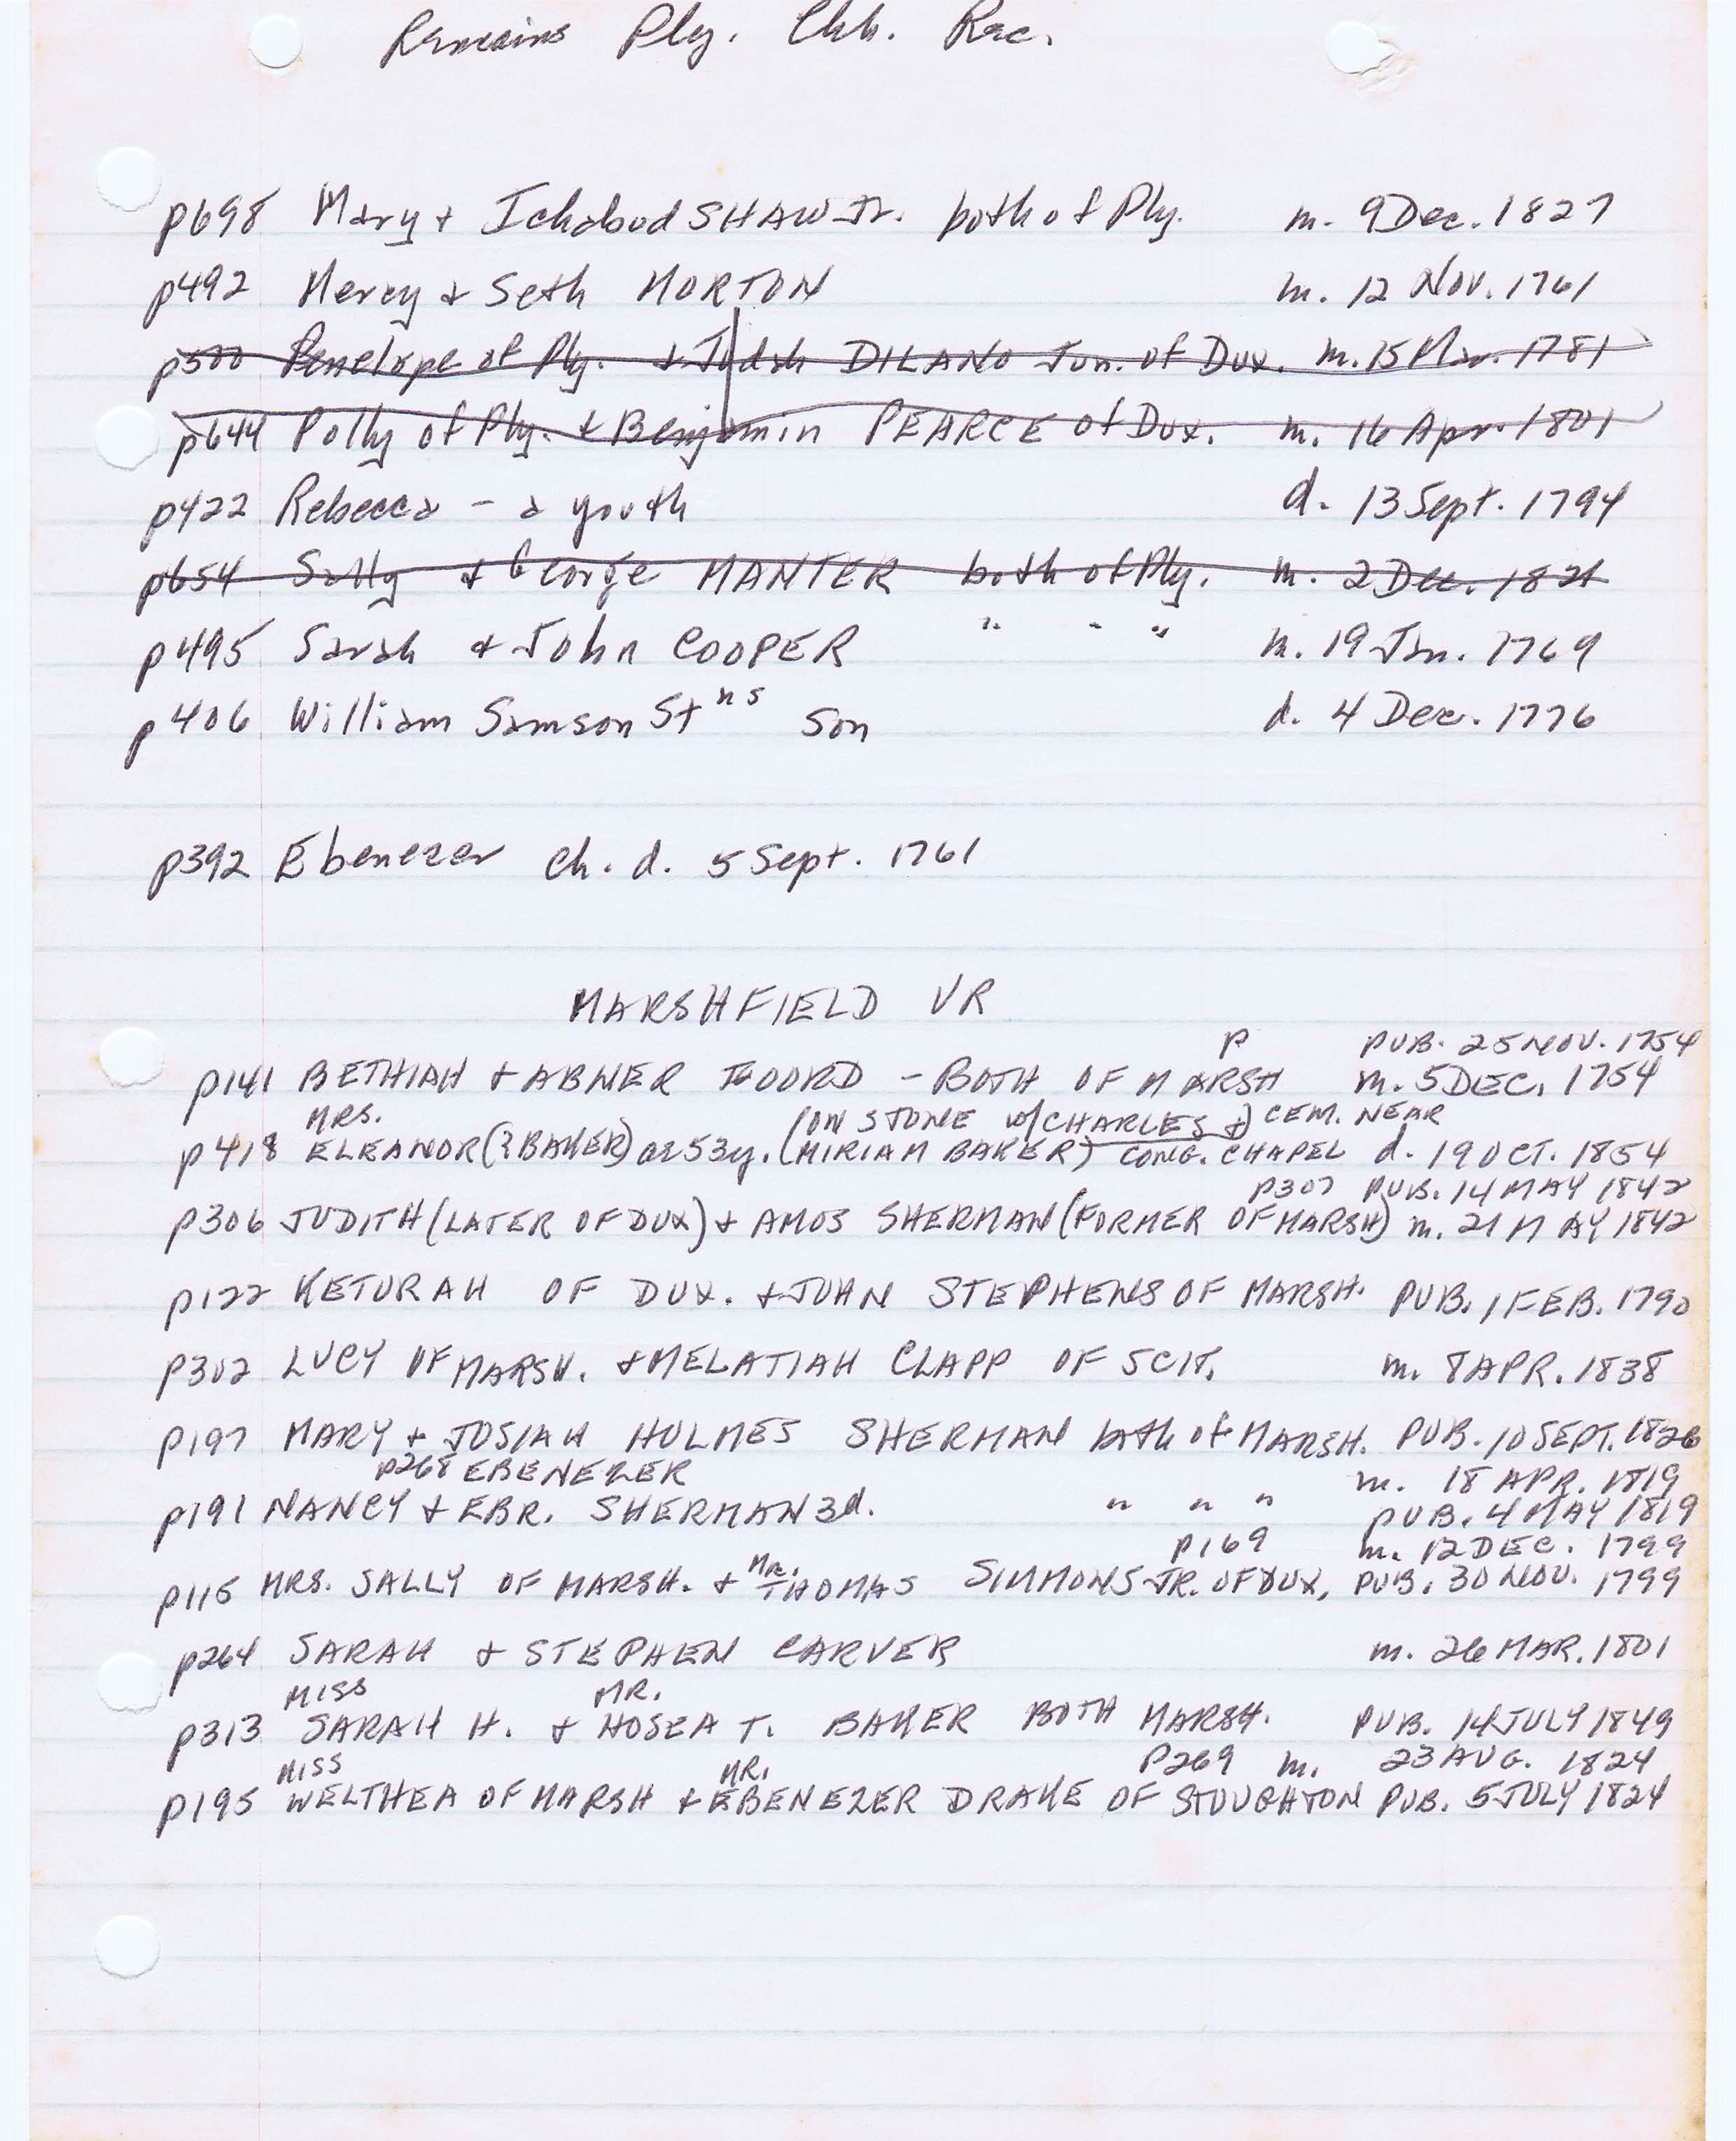 Remains Ply. Chh. Rec.
p698 Mary + Ichabod SHAW Jr. both of Ply. m. 9 Dec. 1827
p492 Mercy + Seth MORTON m. 12 Nov. 1761
p500 Penelope of Ply. + Judah DILANO Jun. of Dux. m. 15 Mar. 1781
p644 Polly of Ply. + Benjamin PEARCE of Dux. m. 16 Apr. 1801
p422 Rebecca - a youth d. 13 Sept. 1794
p654 Sally + George MANTER both of Ply. m. 2 Dec. 1821
p495 Sarah + John COOPER " " " m. 19 Jan. 1769
p406 William Samson Stns Son d. 4 Dec. 1776
p392 Ebenezer ch. d. 5 Sept. 1761
MARSHFIELD VR
p PUB. 25 NOV. 1754
p141 BETHIAH + ABNER FOORD - BOTH OF MARSH m. 5 DEC. 1754
MRS. (ON STONE w/ CHARLES + CEM. NEAR
p418 ELEANOR (? BAKER) ae 53y. (MIRIAM BAKER) CONG. CHAPEL d. 19 OCT. 1854
p307 PUB. 14 MAY 1842
p306 JUDITH (LATER OF DUX) + AMOS SHERMAN (FORMER OF MARSH) m. 21 MAY 1842
p122 KETURAH OF DUX. + JOHN STEPHENS OF MARSH. PUB. 1 FEB. 1790
p302 LUCY OF MARSH. + MELATIAH CLAPP OF SCIT. m. 8 APR. 1838
p197 MARY + JOSIAH HOLMES SHERMAN both of MARSH. PUB. 10 SEPT. 1826
p268 EBENEZER m. 18 APR. 1819
p191 NANCY + EBR. SHERMAN 3d. " " " PUB. 4 MAY 1819
p169 m. 12 DEC. 1799
p115 MRS. SALLY OF MARSH. + Mr. THOMAS SIMMONS JR. OF DUX. PUB. 30 NOV. 1799
p264 SARAH + STEPHEN CARVER m. 26 MAR. 1801
MISS MR.
p313 SARAH H. + HOSEA T. BAKER BOTH MARSH. PUB. 14 JULY 1849
MISS MR. P269 m. 23 AUG. 1824
p195 WELTHEA OF MARSH + EBENEZER DRAKE OF STOUGHTON PUB. 5 JULY 1824